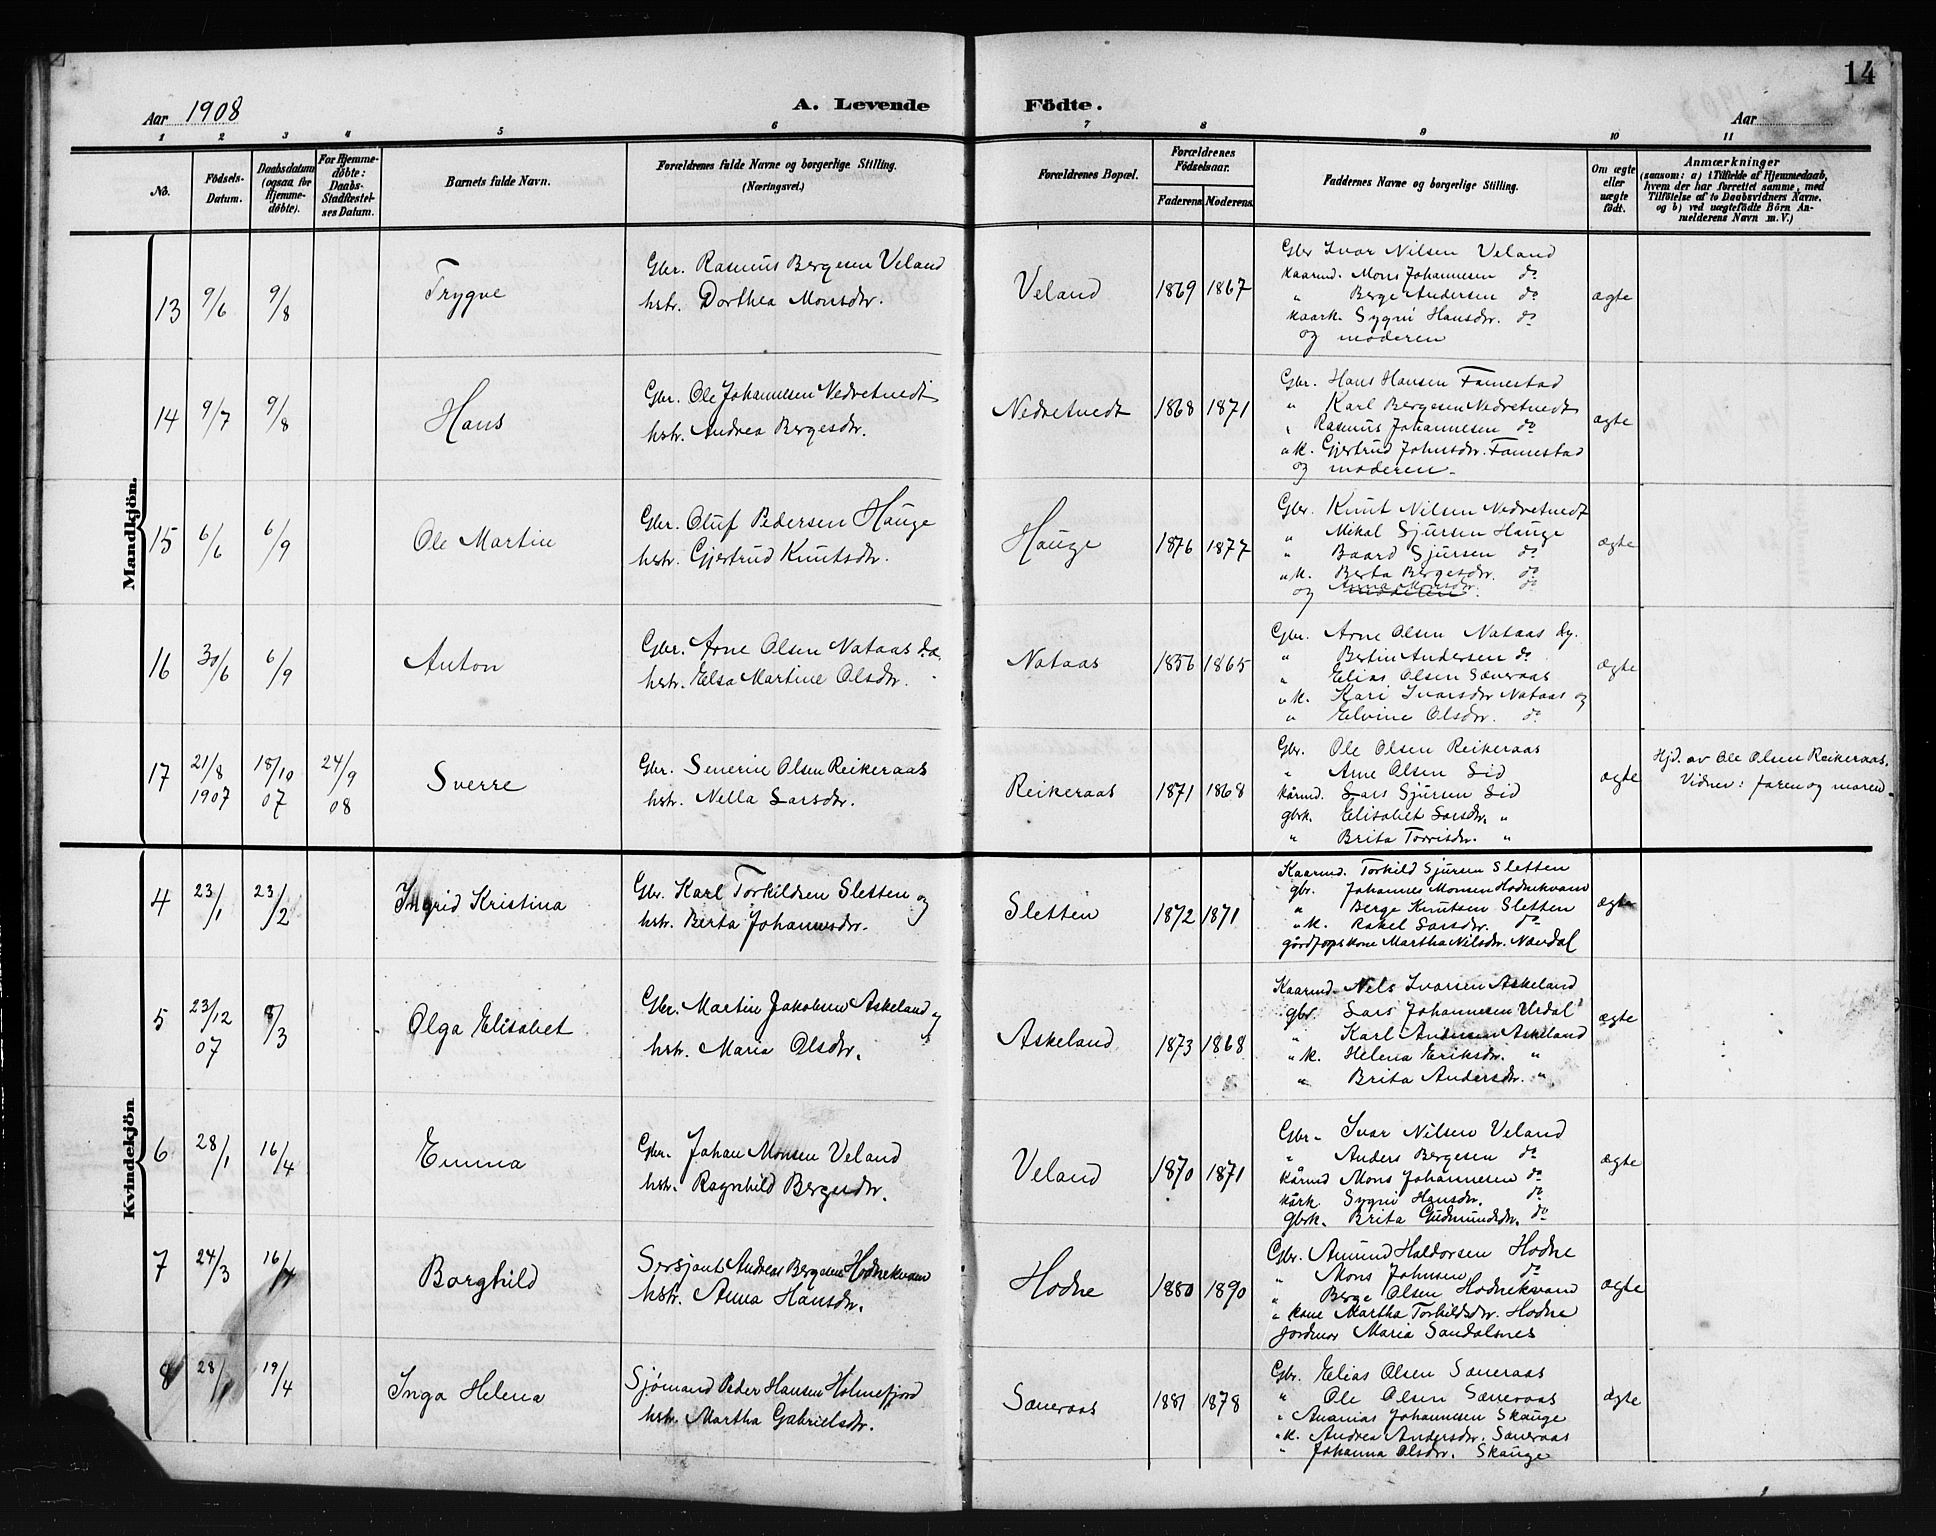 14
Aar 1908
A. Levende Födte.
Aar
1 2 3 4 5 6 7 8 9 10 11
No.
Födsels-Datum.
Daabsdatum (ogsaa for Hjemme-døbte).
For Hjemme-døbte: Daabs-Stadfæstel-ses Datum.
Barnets fulde Navn.
Forældrenes fulde Navne og borgerlige Stilling.
(Næringsvei.)
Forældrenes Bopæl.
Forældrenes Födselsaar.
Faderens. Moderens.
Faddernes Navne og borgerlige Stilling.
Om ægte eller uægte født.
Anmærkninger
(saasom: a) i Tilfælde af Hjemmedaab,
hvem der har forrettet samme, med
Tilføielse af to Daabsvidners Navne,
og b) ved uægtefødte Börn An-
melderens Navn m. V.)
Mandkjön.
13 9/6 9/8 Trygve
Gbr. Rasmus Bergesen Veland
hstr. Dorthea Monsdtr.
Veland 1869 1867
Gbr Ivar Nilsen Veland
kaarmd. Mons Johannesen do
" Berge Andersen do
kaark. Sygni Hansdtr. do
og moderen
ægte
14 9/7 9/8 Hans
Gbr. Ole Johannesen Nedretvedt
hstr. Andrea Bergesdtr.
Nedretvedt 1868 1871
Gbr. Hans Hansen Famestad
" Karl Bergesen Nedretvedt
" Rasmus Johannesen do
" k. Gjertrud Johnsdtr. Famestad
og moderen.
ægte
15 6/6 6/9 Ole Martin
Gbr. Oluf Pedersen Hauge
hstr. Gjertrud Knutsdtr.
Hauge 1876 1877
Gbr. Knut Nilsen Nedretvedt
" Mikal Sjursen Hauge
" Baard Sjursen do
" k. Berta Bergesdtr. do
og Anna Monsdtr. do
moderen
ægte
16 30/6 6/9 Anton
Gbr. Arne Olsen Nataas
hstr. Elsa Martine Olsdtr.
Nataas 1856 1865
Gbr. Arne Olsen Nataas
" Bertin Andersen do
" Elias Olsen Sæveraas
" k. Kari Ivarsdtr Nataas og
" Elvine Olsdtr. do
ægte
17 21/8 1907 18/10 07 24/9 08 Sverre
Gbr. Severin Olsen Reikeraas
hstr. Nella Larsdtr.
Reikeraas 1871 1868
Gbr. Ole Olsen Reikeraas
" Arne Olsen Lid
kårmd. Lars Sjursen Lid
gbrk. Elisabet Larsdtr. "
" Brita Torrisdtr. "
ægte
Hjd. av Ole Olsen Reikeraas.
Vidner: faren og moren.
Kvindekjön
4 23/1 23/2 Ingrid Kristina
Gbr. Karl Torkildsen Sletten og
hstr. Berta Johannesdtr.
Sletten 1872 1871
Kaarmd. Torkild Sjursen Sletten
gbr. Johannes Monsen Hodnekvam
" Berge Knutsen Sletten
" k. Rakel Larsdtr. do
Martha Nilsdtr.
ægte
5 23/12 07 8/3 Olga Elisabet
Gbr. Martin Jakobsen Askeland og
hstr. Maria Olsdtr.
Askeland 1873 1868
Kaarmd. Nels Ivarsen Askeland
gbr. Lars Johannesen Urdal
" Karl Andersen Askeland
" k. Helena Eriksdtr. "
" Brita Andersdtr. "
ægte
6 28/1 16/4 Emma
Gbr. Johan Monsen Veland
hstr. Ragnhild Bergesdtr.
Veland 1870 1871
Gbr. Ivar Nilsen Veland
" Anders Bergesen do
kårmd Mons Johannesen do
kårk Sygni Hansdtr. do
gbrk. Brita Gudmundsdtr. do
ægte
7 24/3 16/4 Borghild
Sersjant Andreas Bergesen Hodnekvam
hstr. Anna Hansdtr.
Hodne 1880 1890
Gbr. Amund Haldorsen Hodne
" Mons Johnsen do
" Berge Olsen Hodnekvam
" kone Martha Torkildsdtr. Hodne
jordmor Maria Sandalsnes
ægte
8 28/1 19/4 Inga Helena
Sjømand Peder Hansen Holmefjord
hstr. Martha Gabrielsdtr.
Sæveraas 1881 1878
Gbr. Elias Olsen Sæveraas
" Ole Olsen Sæveraas
" Ananias Johannesen Skauge
" k. Andrea Andersdtr. Sæveraas
" Johanna Olsdtr. Skauge
ægte